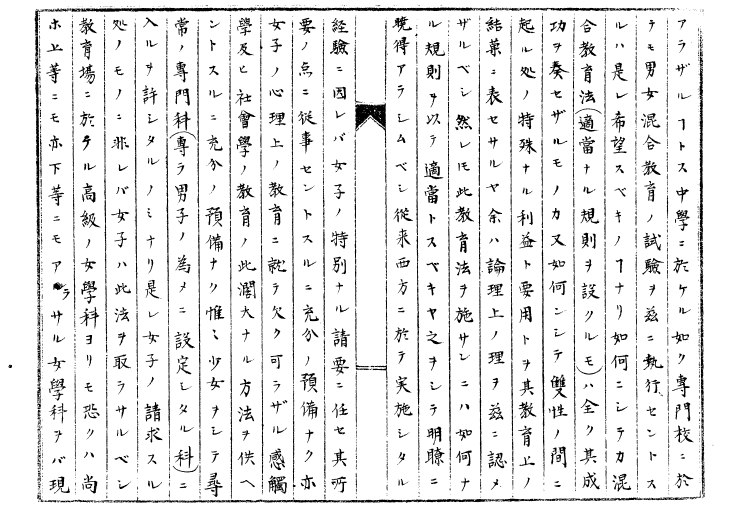 アラザルヿトス中學ニ於ケル如ク專門校ニ於
テモ男女混合教育ノ試驗ヲ茲ニ執行セントス
ルハ是レ希望スベキノヿナリ如何ニシテカ混
合教育法(適當ナル規則ヲ設クルモ)ハ全ク其成
功ヲ奏セザルモノカ又如何ンシテ雙性ノ間ニ
起ル処ノ特殊ナル利益ト要用トヲ其教育上ノ
結菓ニ表セサルヤ余ハ論理上ノ理ヲ茲ニ認メ
ザルベシ然レ𪜈此教育法ヲ施サンニハ如何ナ
ル規則ヲ以テ適當トスベキヤ之ヲシテ明瞭ニ
曉得アラシムベシ從来西方ニ於テ実施シタル
経驗ニ因レバ女子ノ特別ナル請要ニ任セ其所
要ノ点ニ從事セントスルニ充分ノ預備ナク亦
女子ノ心理上ノ教育ニ就テ欠ク可ラザル感觸
學及ヒ社會學ノ教育ノ此濶大ナル方法ヲ供ヘ
ントスルニ充分ノ預備ナク惟ミ少女ヲシテ尋
常ノ專門科(專ラ男子ノ為メニ設定シタル科)ニ
入ルヲ許シタルノミナリ是レ女子ノ請求スル
処ノモノニ非レバ女子ハ此法ヲ取ラサルベシ
教育場ニ於テル高級ノ女學科ヨリモ恐クハ尚
ホ上等ニモ亦下等ニモアラサル女學科ヲバ現